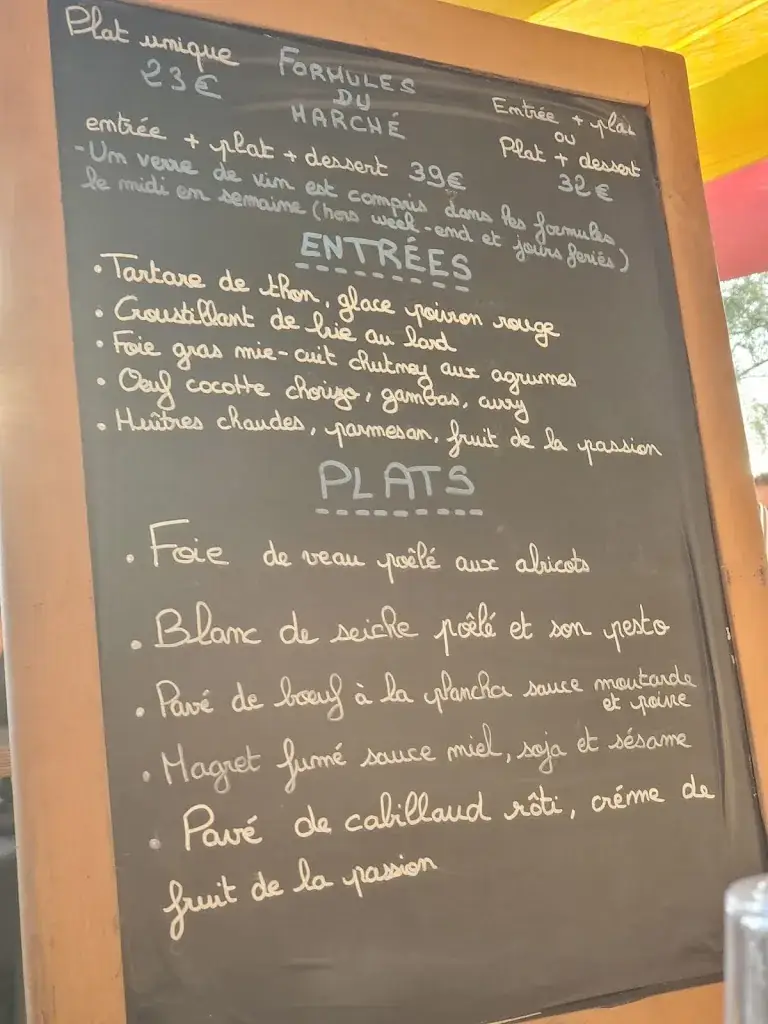 Plat unique
23€
FORMULES
DU
MARCHÉ
Entrée + plat
ou
Plat + dessert
32€
entrée + plat + dessert 39€
- Un verre de vin est compris dans les formules
le midi en semaine (hors week-end et jours feriés)
ENTRÉES
• Tartare de thon, glace poivron rouge
• Croustillant de brie au lard
• Foie gras mie-cuit chutney aux agrumes
• Oeuf cocotte chorizo, gambas, curry
• Huîtres chaudes, parmesan, fruit de la passion
PLATS
• Foie de veau poêlé aux abricots
• Blanc de seiche poêlé et son pesto
• Pavé de boeuf à la plancha sauce moutarde
et poivre
• Magret fumé sauce miel, soja et sésame
• Pavé de cabillaud rôti, créme de
fruit de la passion